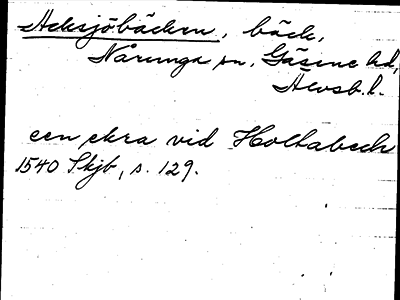 Acksjöbäcken, bäck,
Nårunga sn, Gäsene hd,
Älvsb. l.
een ekra vid Holtabeck
1540 Skjb, s. 129.